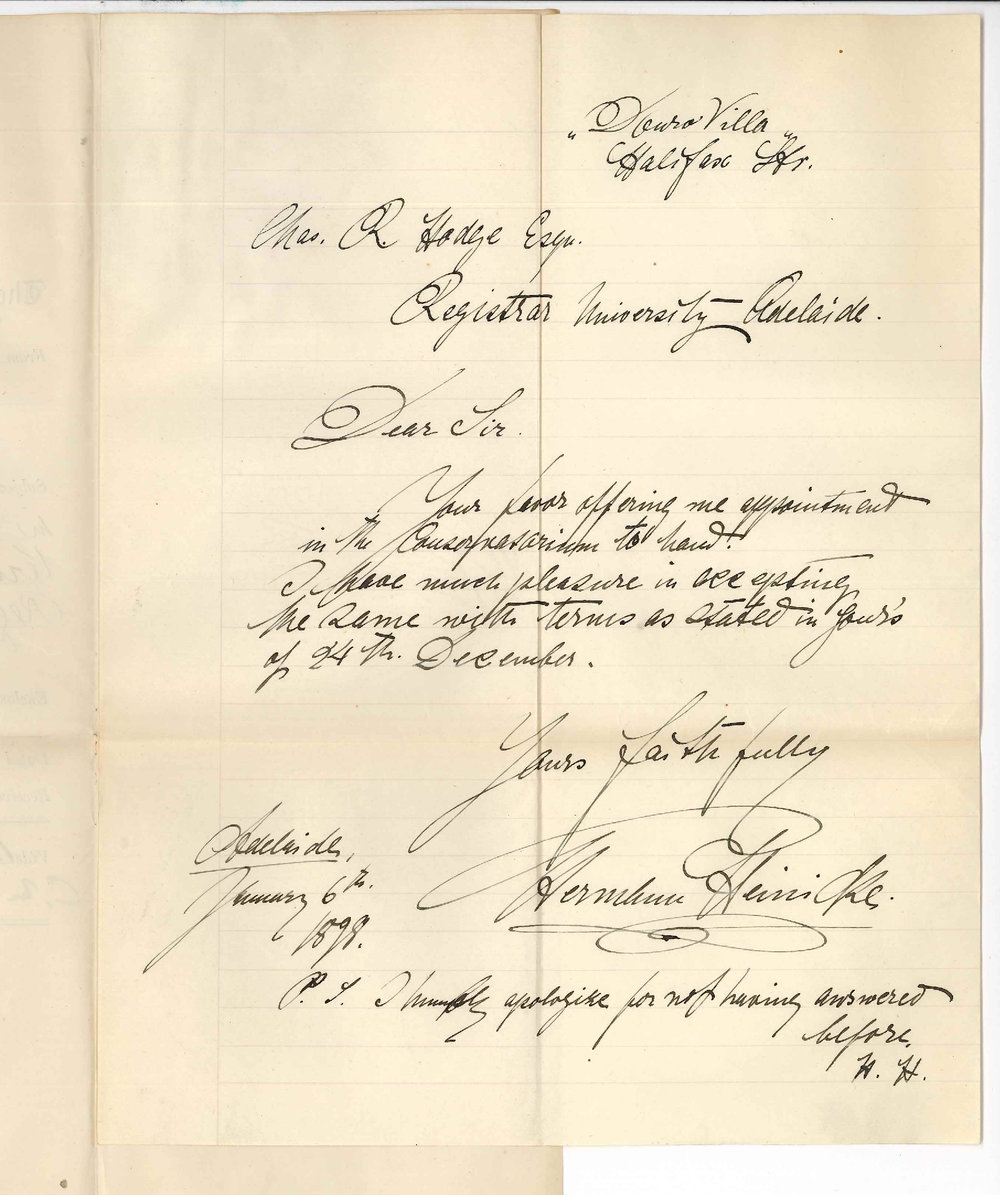 „Douro Villa„
Halifax Str.
Chas. R. Hodge Esqu.
Registrar University Adelaide.
Dear Sir.
Your favor offering me appointment
in the Conservatorium to hand!
I have much pleasure in accepting
the same with terms as stated in your's
of 24th. December.
Yours faithfully
Hermann Heinicke.
Adelaide,
January 6th.
1898.
P. S. I humbly apologize for not having answered
before.
H. H.